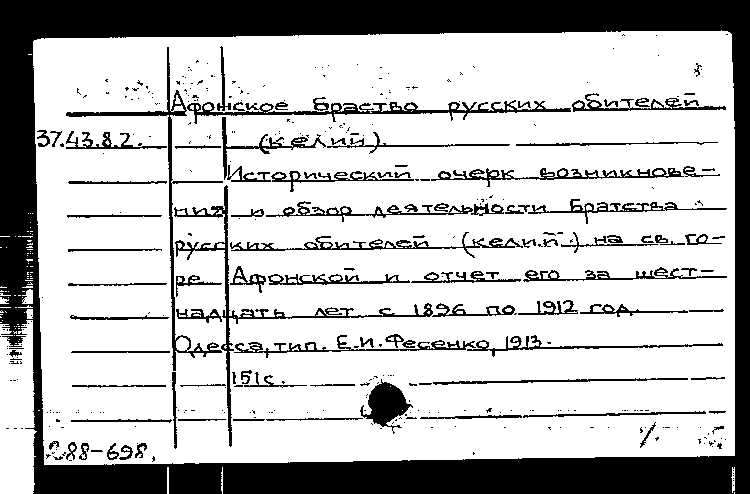 Афонское Братство русских обителей
37.43.8.2. (келий).
Исторический очерк возникнове-
ния и обзор деятельности Братства
русских обителей (келий) на св. го-
ре Афонской и отчет его за шест-
надцать лет с 1896 по 1912 год.
Одесса, тип. Е.И. Фесенко, 1913.
151с.
288-698.